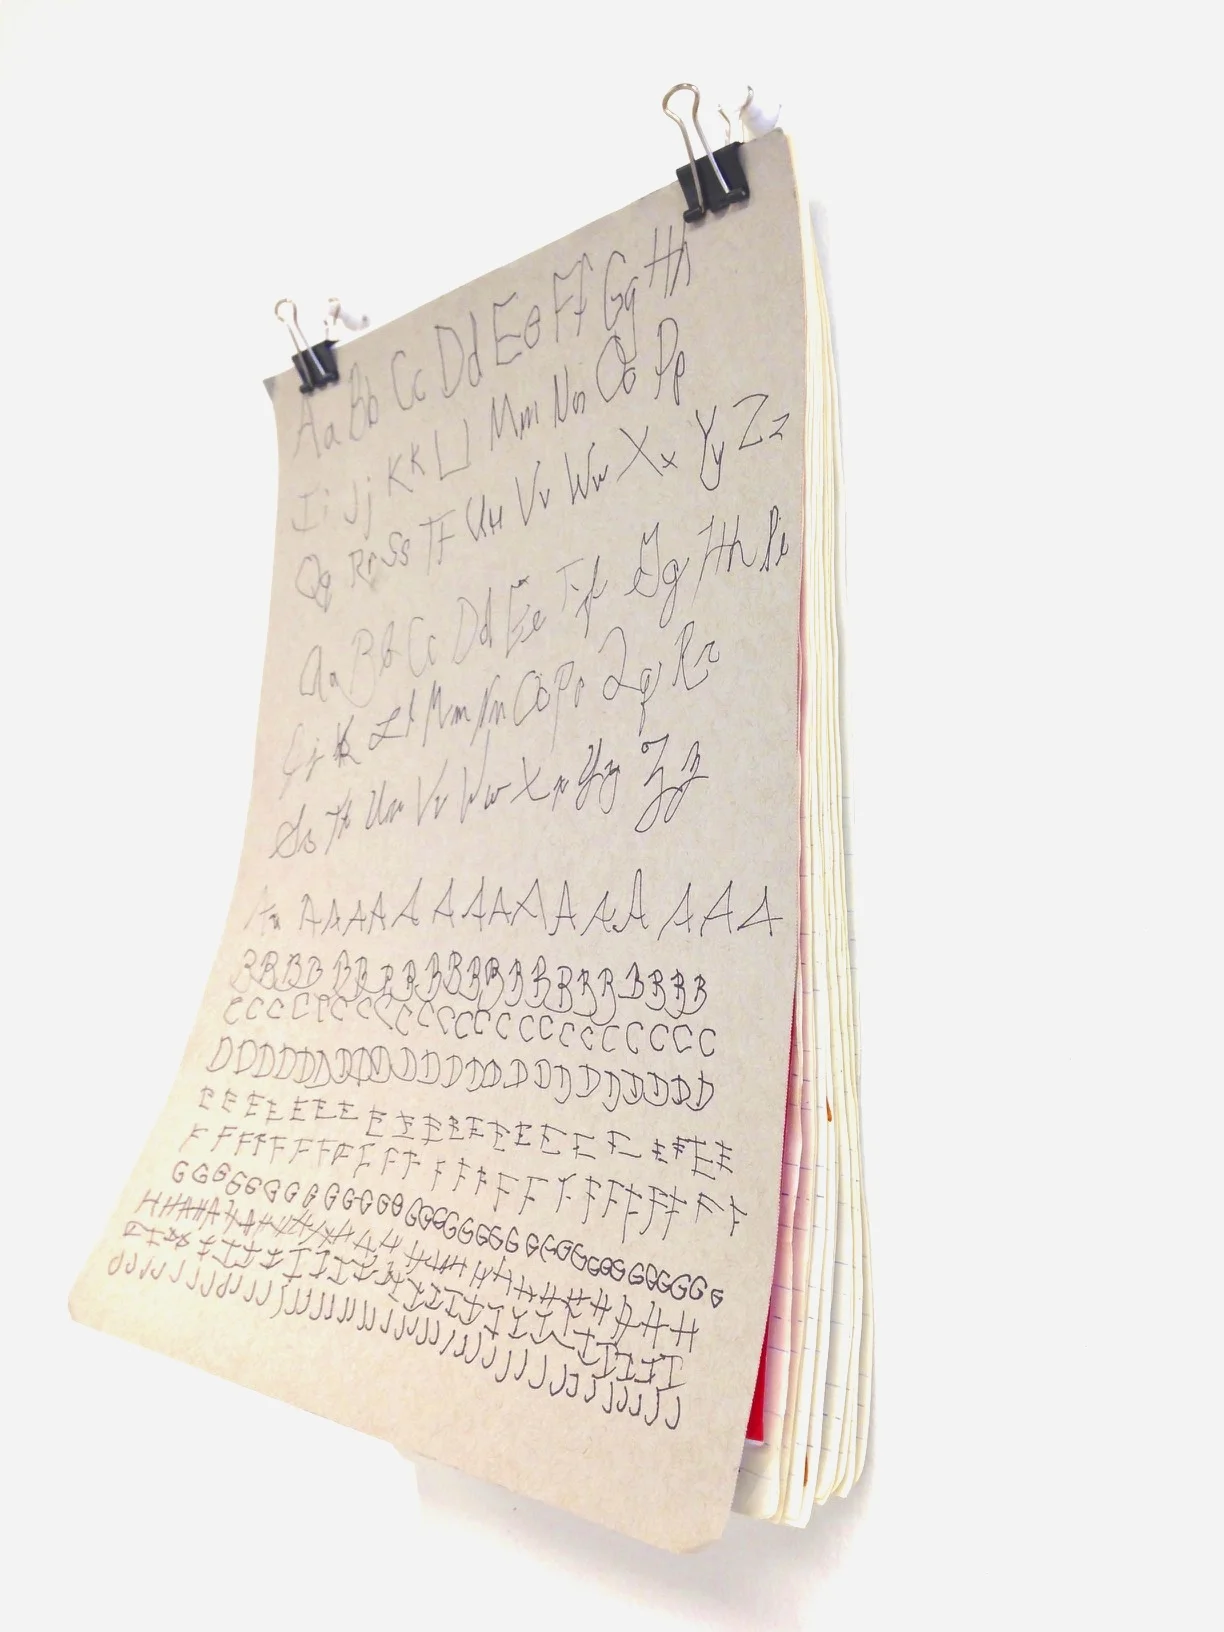 Aa Bb Cc Dd Ee Ff Gg Hh
Ii Jj Kk Ll Mm Nn Oo Pp
Qq Rr Ss Tt Uu Vv Ww Xx Yy Zz
Aa Bb Cc Dd Ee Ff Gg Hh Ii
Jj K Ll Mm Nn Oo Pp Qq Rr
Ss Tt Uu Vv Ww Xx Yy Zz
Aa A A A A A A A A A A A A A A A A
B B B B B B B B B B B B B B B B B B B B B
C C C C C C C C C C C C C C C C C C C C C C
D D D D D D D D D D D D D D D D D D D D D D
E E E E E E E E E E E E E E E E E E E E E
F F F F F F F F F F F F F F F F F F F F F F F F
G G G G G G G G G G G G G G G G G G G G G G G G G G G G G G
H H H H H H H H H H H H H H H H H H H H H H H H
I I I I I I I I I I I I I I I I I I I I I I I I
J J J J J J J J J J J J J J J J J J J J J J J J J J J J J J